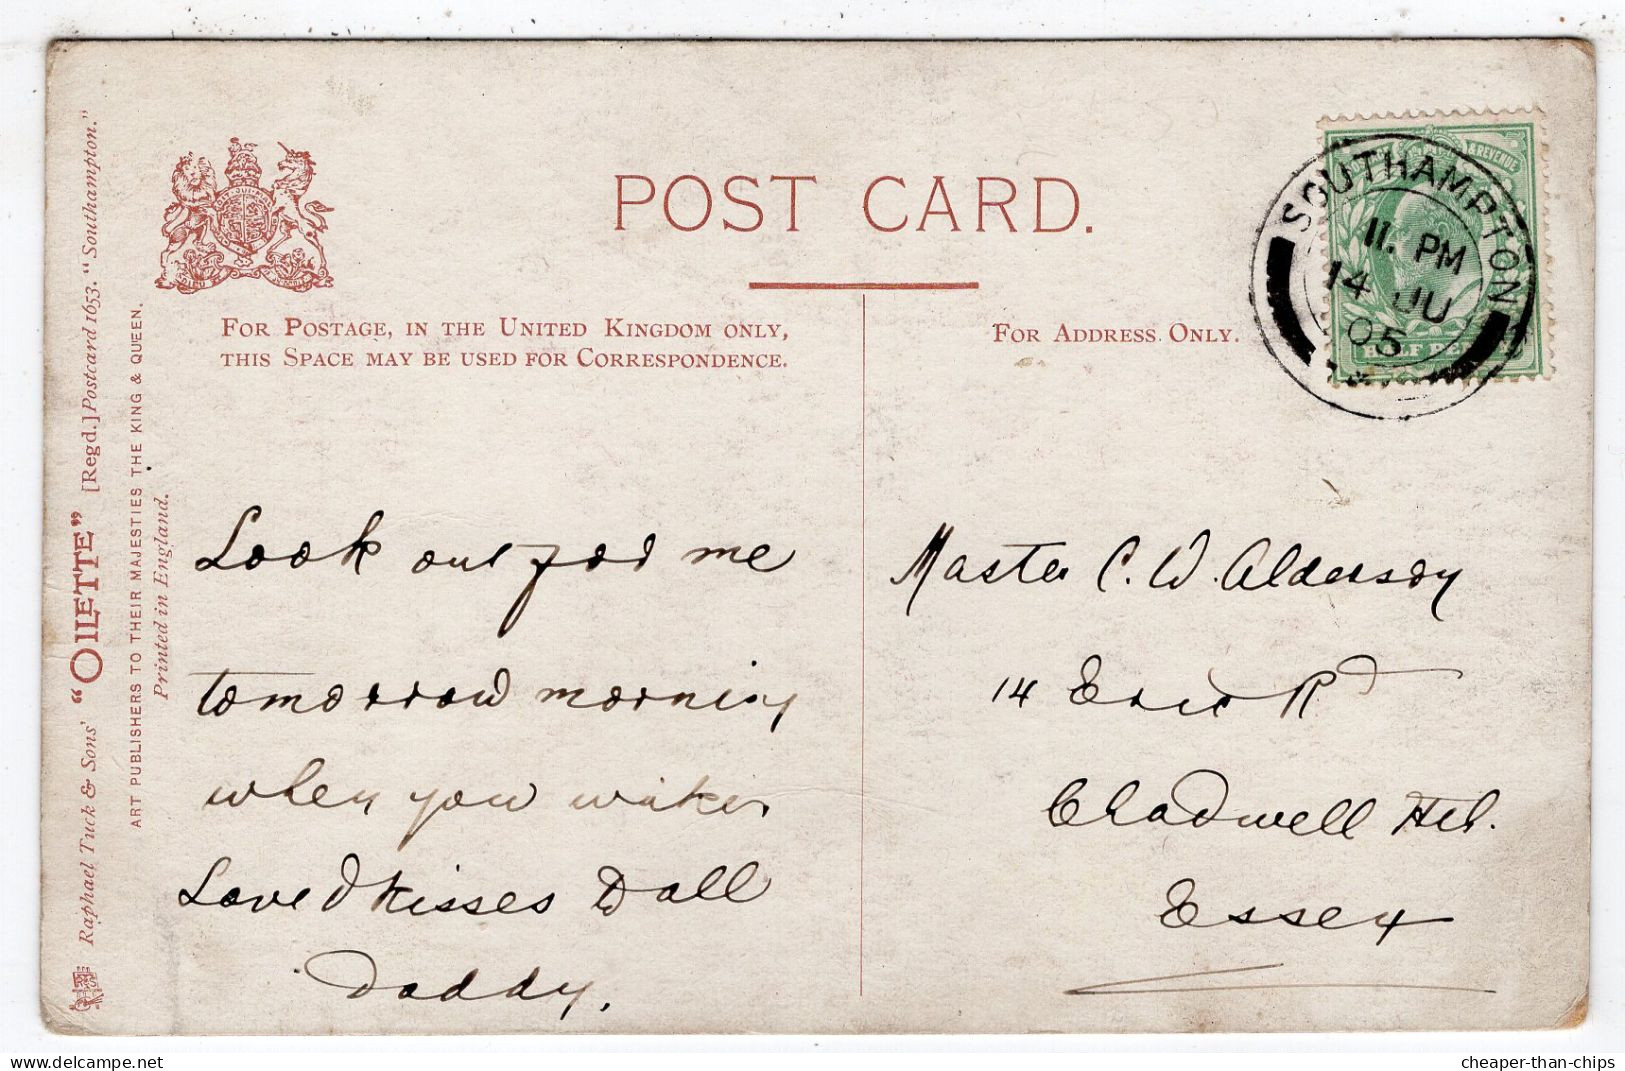 POST CARD.
FOR POSTAGE, IN THE UNITED KINGDOM ONLY,
THIS SPACE MAY BE USED FOR CORRESPONDENCE.
FOR ADDRESS ONLY.
Raphael Tuck & Sons' "OILETTE" [Regd.] Postcard 1653. "Southampton."
ART PUBLISHERS TO THEIR MAJESTIES THE KING & QUEEN.
Printed in England.
SOUTHAMPTON
11. PM
14 JU
05
& REVENUE
HALF PENNY
Look out for me
tomorrow morning
when you wake.
Love & kisses to all
Daddy.
Master C. W. Alderson
14 Eric Rd
Chadwell Hth.
Essex
cheaper-than-chips